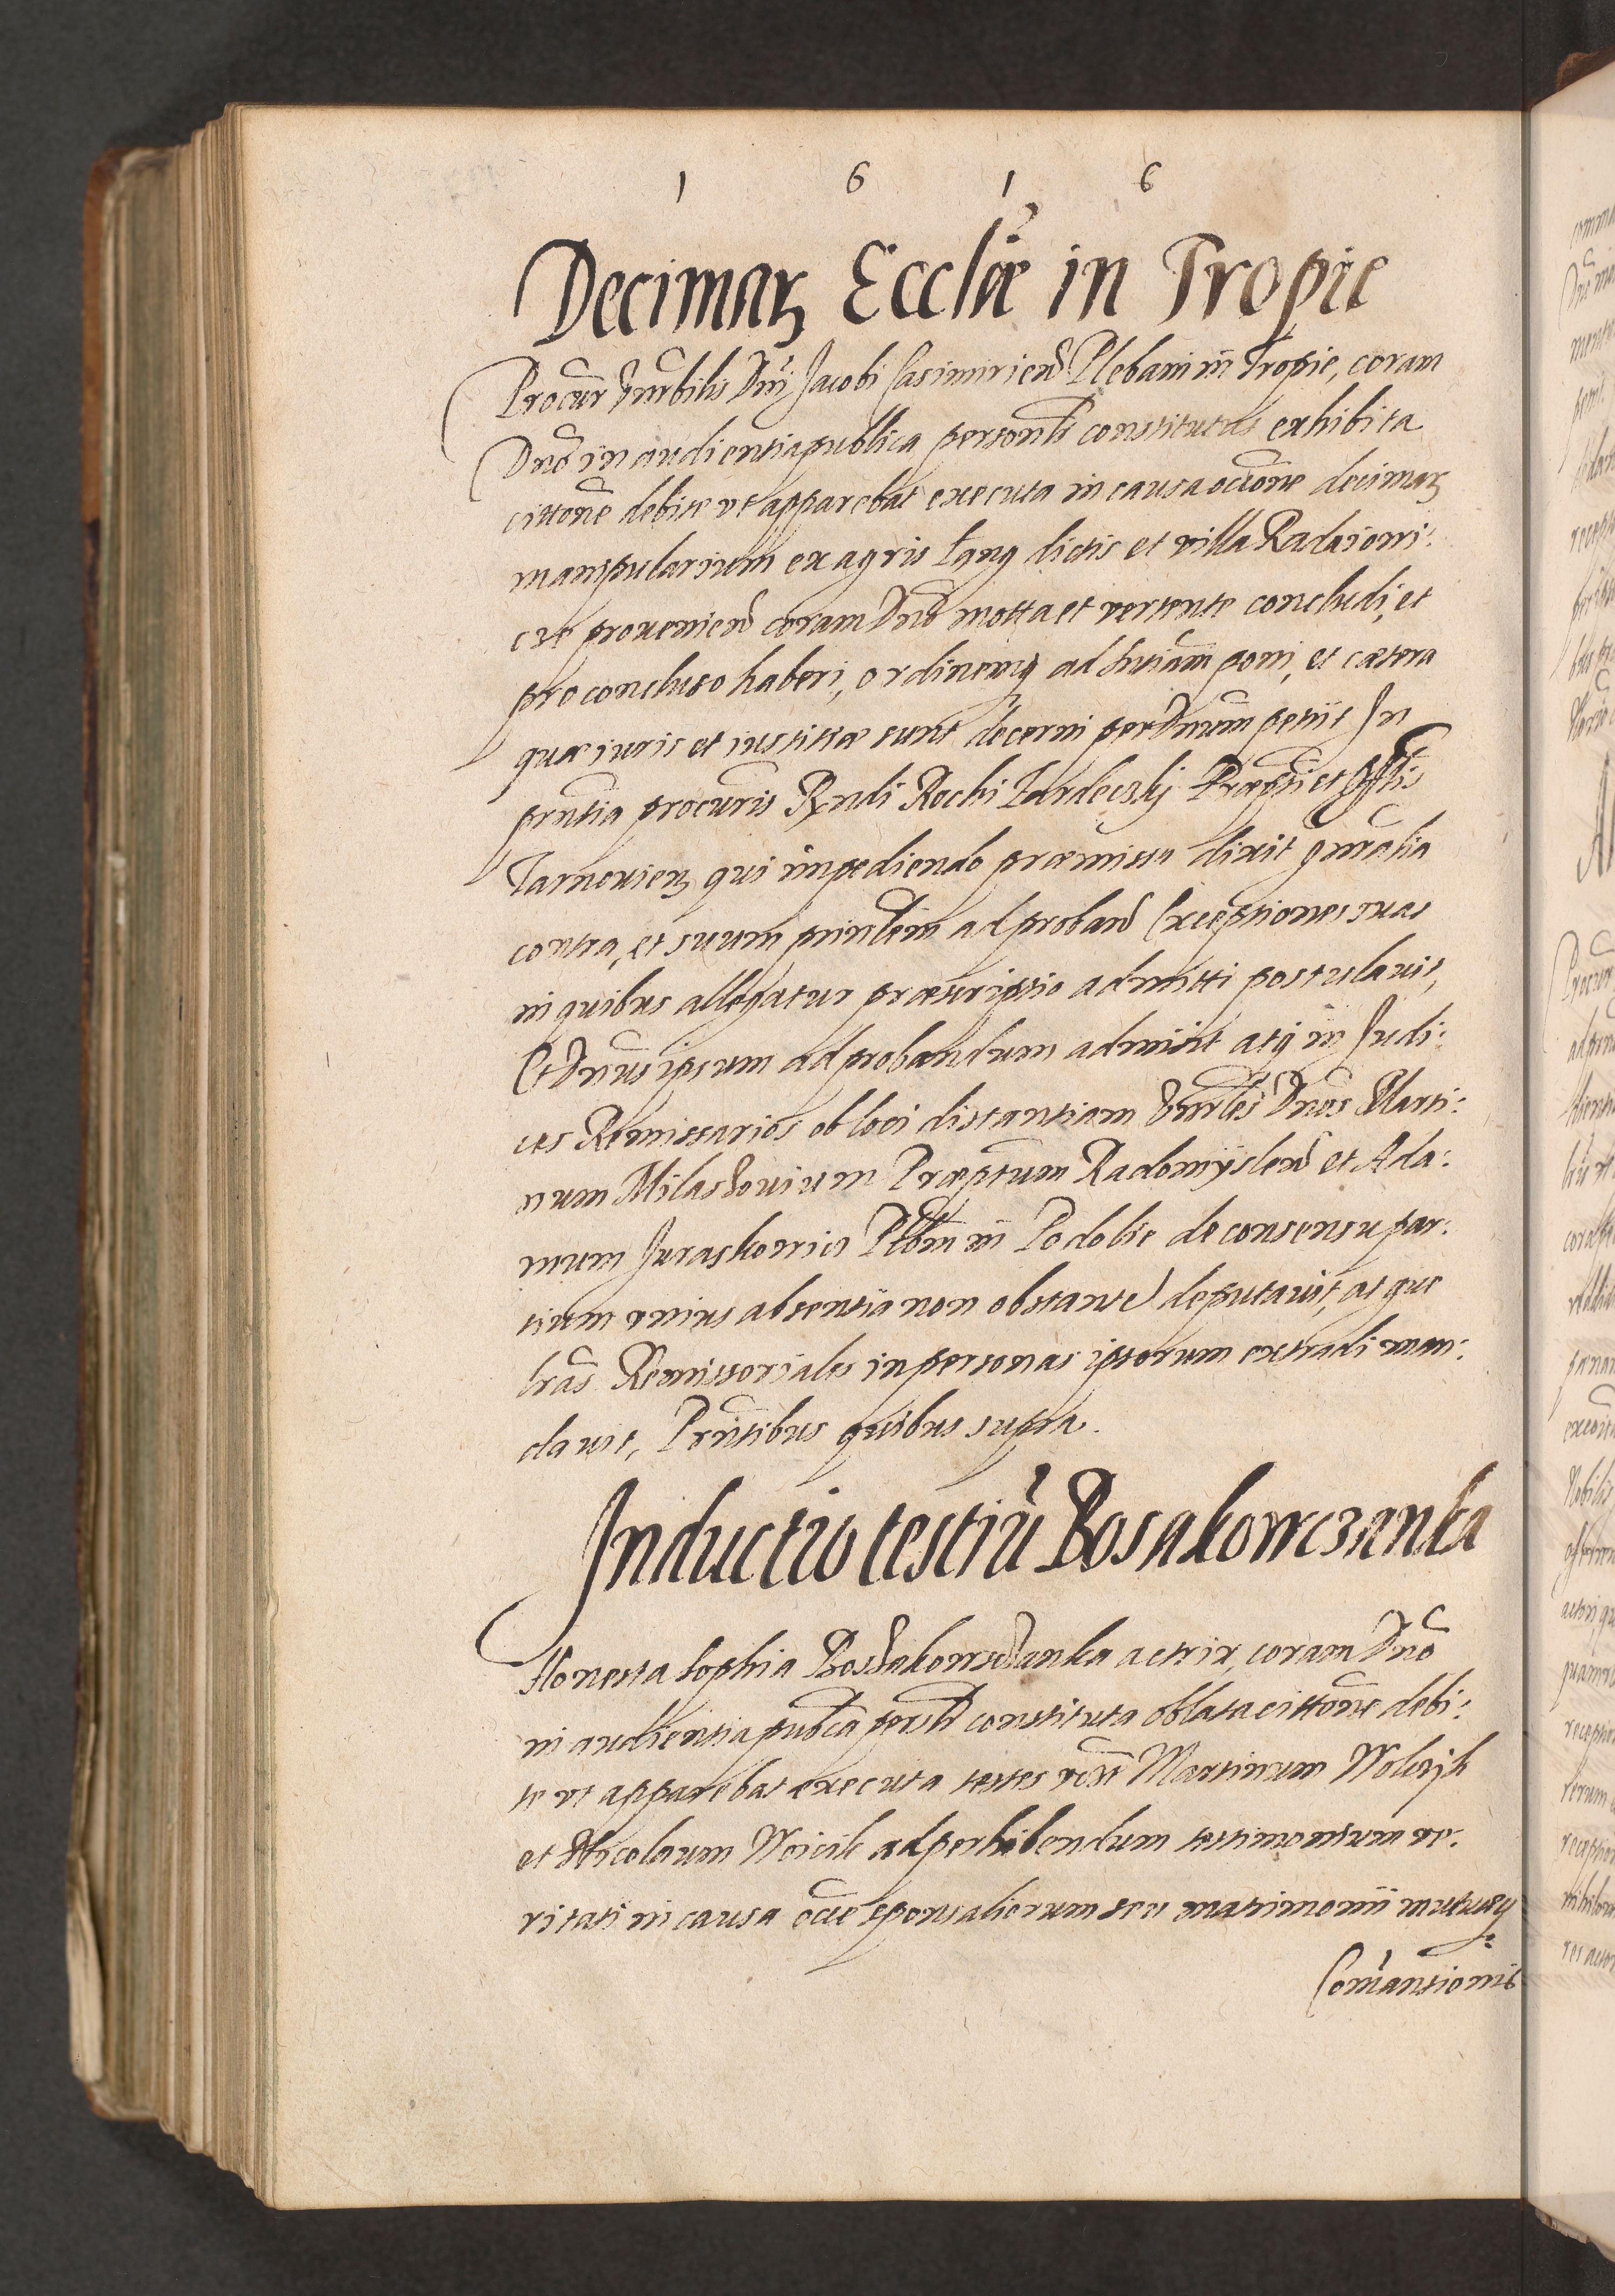 1 6 1 6
Decimaꝝ Ecclæ in Tropie
Procur Vnrbilis Dni Jacobi Casimirien Plebani in Tropie, coram
Dno in audientia publica personlr constitutus exhibita
cittone debite vt apparebat executa in causa occone decimaꝝ
manipularium ex agris dictis et villa Radaiowi:
cze prouenien coram Dno motta et vertente concludi, et
pro concluso haberi, ordinemq ad sntiam poni, et cætera
quæ iuris et iustitiæ sunt decerni per Dnum petiit In
prntia procuris Rndi Rochi Jardecskj Præpti et Offlis
Tarnouien qui impediendo præmissa dixit gnralia
contra, et suum prinlem ad proband Exceptiones suas
in quibus allegatur præscriptio admitti postulauit,
Et Dnus ipsum ad probandum admisit atq in Judi:
ces Remissarios ob loci distantiam Vnrles Dnos Marti:
num Milaszouium Præptum Radomyslen et Ada:
mum Juraskowicz Plbnm in Podolie de consensu par:
tium vnius absentia non obstante deputauit, atque
lras Remissoriales in personas ipsorum extradi man:
dauit, Prntibus quibus supra.
Inductio testiũ Bosakowczanka
Honesta Sophia Boszakowszanka actrix, coram Dno
in audientia publca persnlr constituta oblata cittone debi:
te vt apparebat executa testes Martinum Wolczik
et Nicolaum Woicik ad perhibendum testimonium ve:
ritati in causa occne sponsaliorum seu matrimonii mutuæq
Comansionis